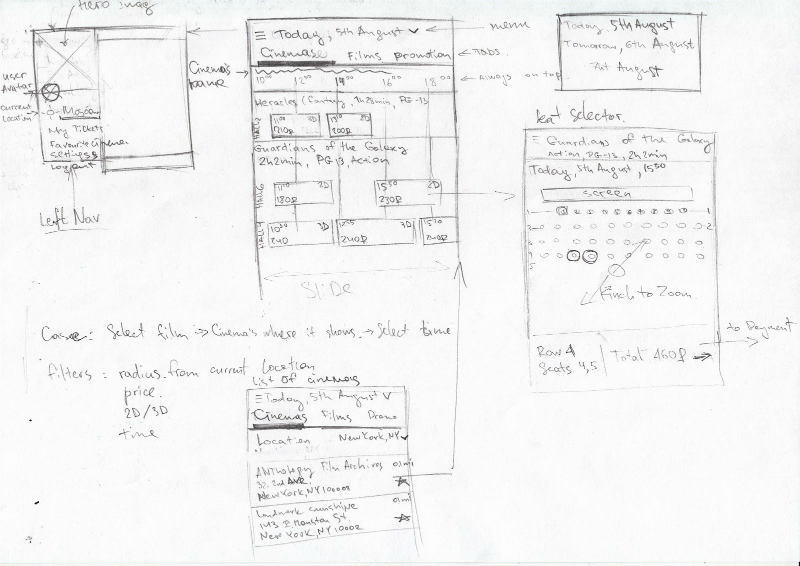 Hero imag
user
Avatar
current
Location
Moscow
My Tickets
Favourite Cinema
settings
Logout
Left Nav
Today, 5th August
menu
Cinemas Films promotion
TABS
Cinema's
name
10:00 12:00 14:00 16:00 18:00
Always on top
Heracles (Fantasy, 1h28min, PG-13
HALL 2
11:00 2D
210₽
200₽
Guardians of the Galaxy
2h2min, PG 13, Action
HALL 6
11:00 2D
180₽
15:50 2D
230₽
HALL 4
10:30 3D
240
3D
240₽
3D
240₽
SliDe
Today, 5th August
Tomorow, 6th August
7th August
Seat selector.
Guardians of the Galaxy
Action, PG-13, 2h2min
Today, 5th August, 15:50
screen
1 1
2 2
Pinch to Zoom
Row 4
Seats 4,5
Total 460₽
to Payment
Case: Select film → Cinema's where it shows. → Select time
filters: radius from current Location
price.
2D/3D
time
List of cinemas
Today, 5th August
Cinemas Films Promo
Location New York, NY
ANthology Film Archives 0.1mi
32, 2nd Ave.
New York, NY 10003
Landmark Sunshine 0.1mi
143 E Houston St
New York, NY 10002